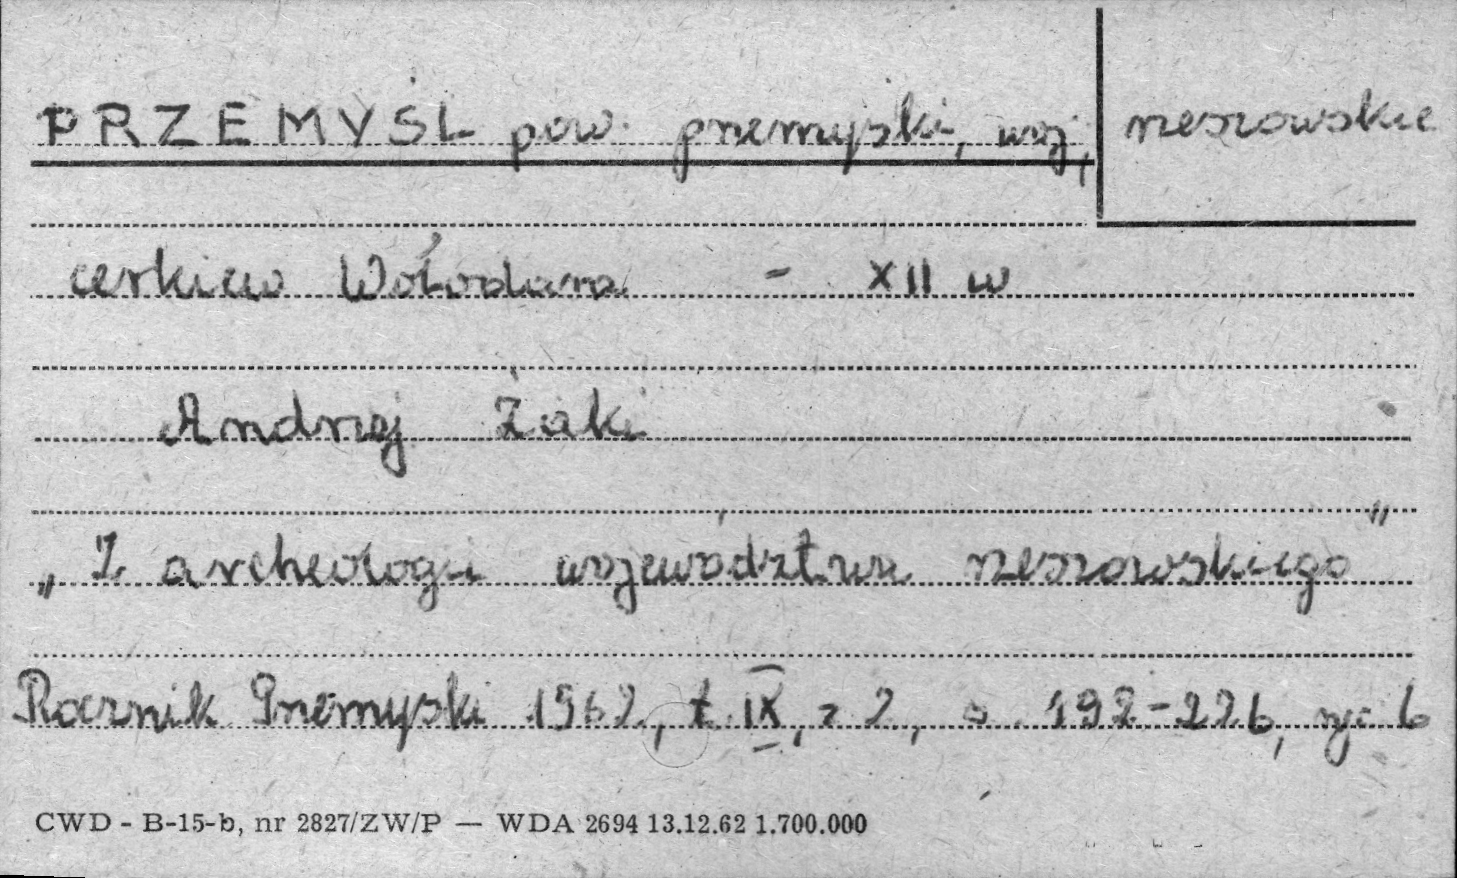 PRZEMYŚL pow. przemyski, woj, rzeszowskie
cerkiew Wołodara - XII w
Andrzej Żaki
„Z archeologii województwa rzeszowskiego"
Rocznik Przemyski 1962, t. IX, z 2, s. 192-226, ryc 6
CWD - B-15-b, nr 2827/ZW/P — WDA 2694 13.12.62 1.700.000